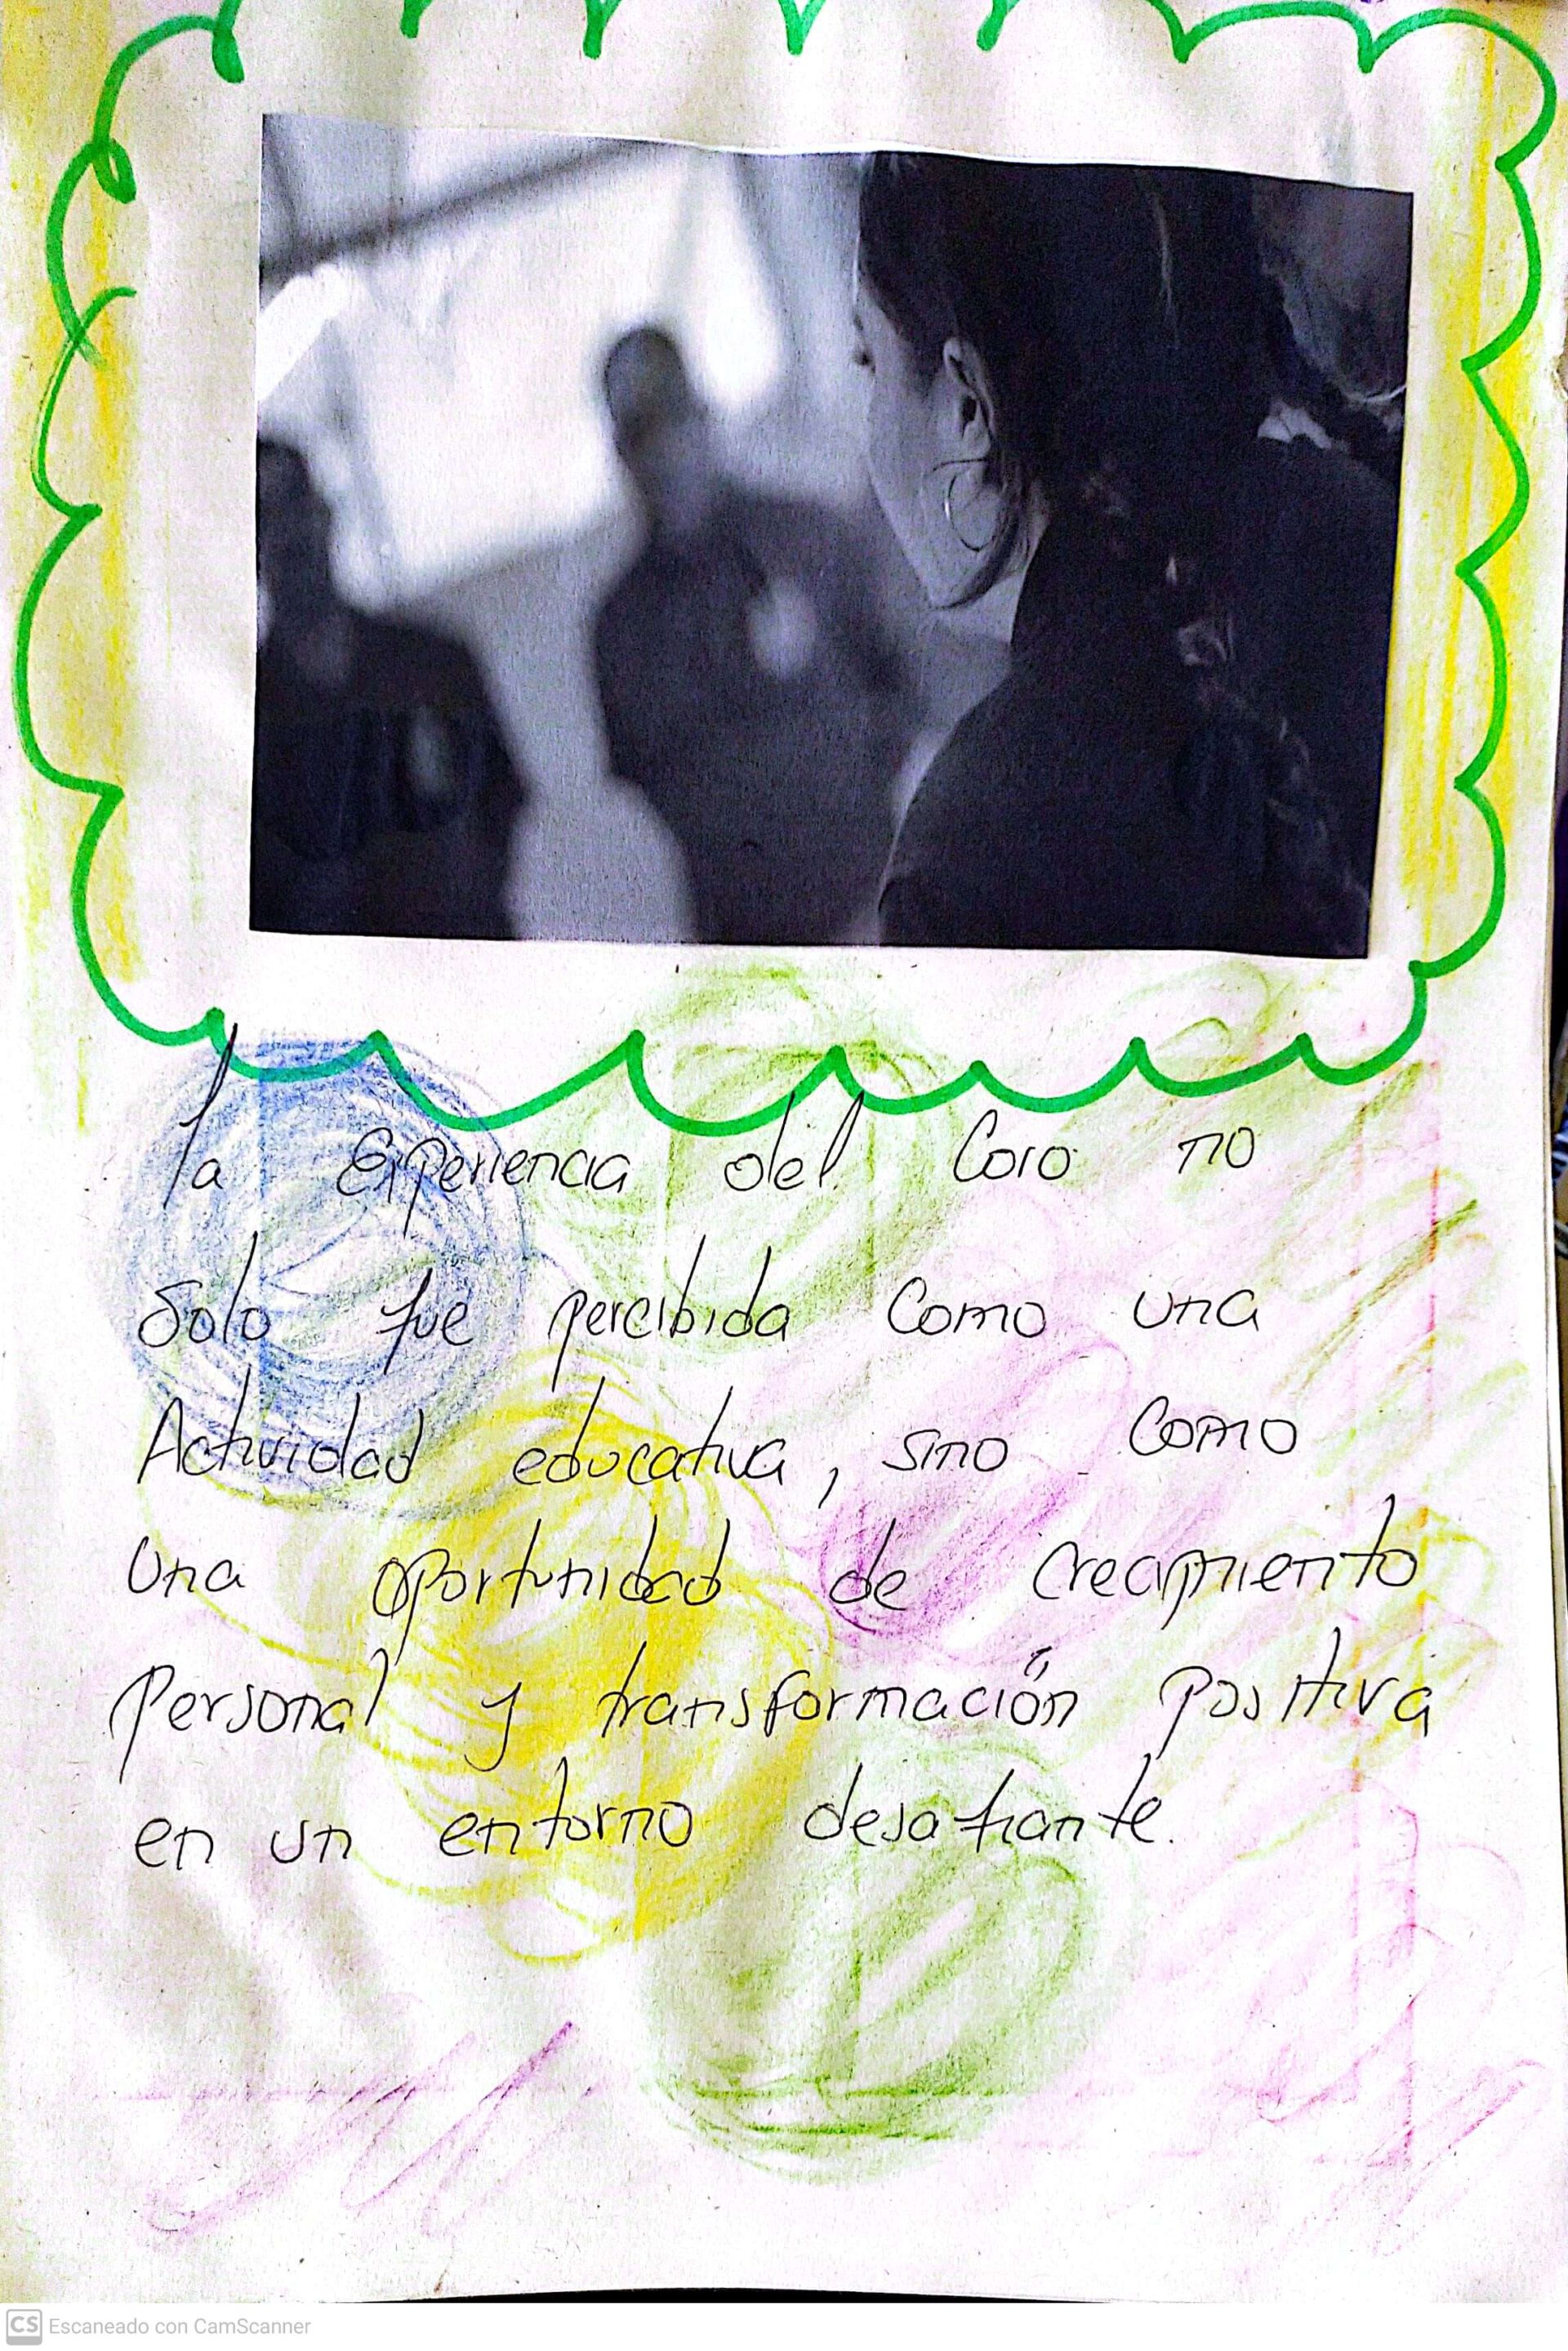 La Experiencia del Coro no
Solo fue percibida Como una
Actividad educativa, sino Como
Una oportunidad de Crecimiento
Personal y transformación positiva
en un entorno desafiante.
CS Escaneado con CamScanner